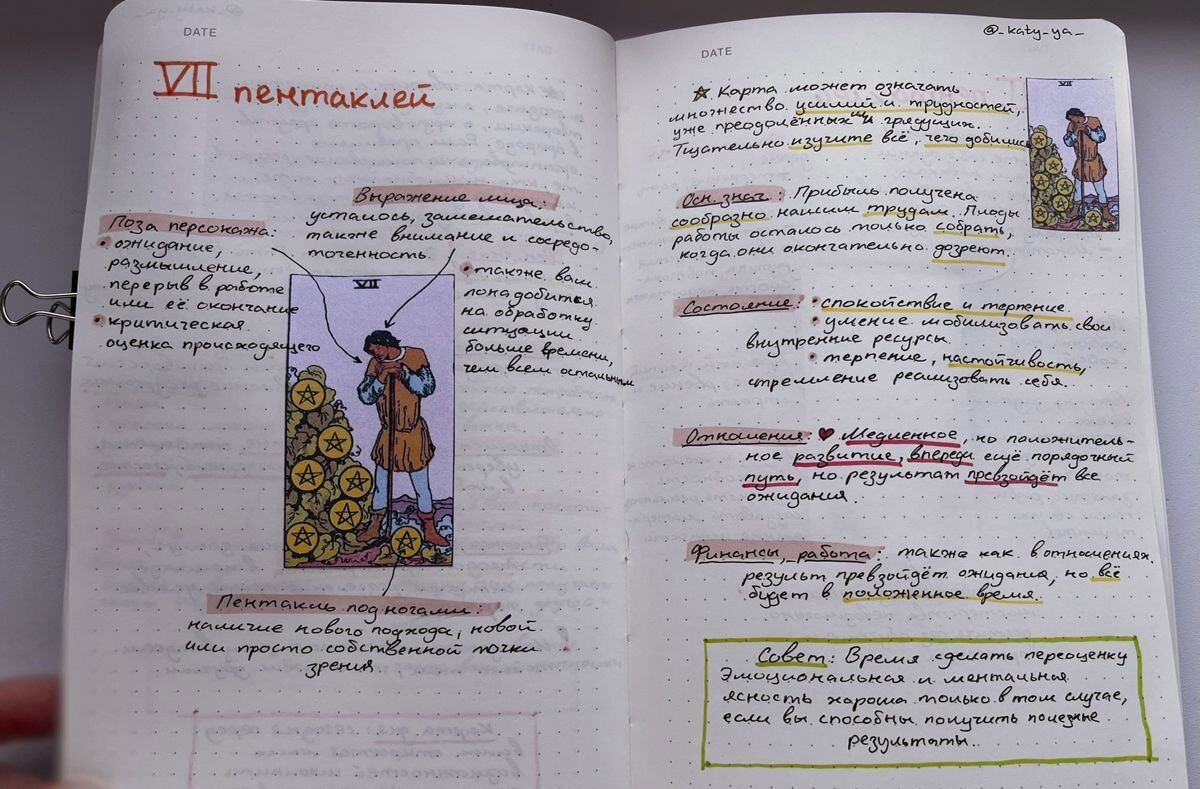 DATE
VII пентаклей
Выражение лица:
усталось, замешательство,
также внимание и сосредо-
точенность.
Поза персонажа:
• ожидание,
размышление,
перерыв в работе
или её окончание
• критическая
оценка происходящего
• также вам
понадобится
на обработку
ситуации
больше времени,
чем всем остальным
VII
Пентакль под ногами:
наличие нового подхода, новой
или просто собственной точки
зрения
DATE
@_katy_ya_
☆ Карта может означать
множество усилий и трудностей,
уже преодолённых и грядущих.
Тщательно изучите всё, чего добились
VII
Осн. знач: Прибыль получена
сообразно нашим трудам. Плоды
работы осталось только собрать,
когда они окончательно дозреют.
Состояние: • спокойствие и терпение
• умение мобилизовать свои
внутренние ресурсы
• терпение, настойчивость,
стремление реализовать себя.
Отношения: ♥ Медленное, но положитель-
ное развитие, впереди ещё порядочный
путь, но результат превзойдёт все
ожидания.
Финансы, работа: также как в отношениях
результ превзойдёт ожидания, но всё
будет в положенное время.
Совет: Время сделать переоценку
Эмоциональная и ментальная
ясность хороша только в том случае,
если вы способны получить полезные
результаты.